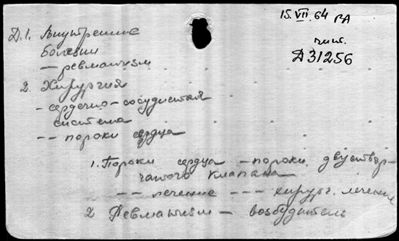 15.VII.64 РА
чит.
Д31256
Д.1. Внутренние
болезни
— ревматизм
2. Хирургия
- сердечно-сосудистая
система
-- пороки сердца
1. Пороки сердца - пороки двуствор-
чатого клапана
-- лечение --- хирург. лечение
2 Ревматизм — возбудитель